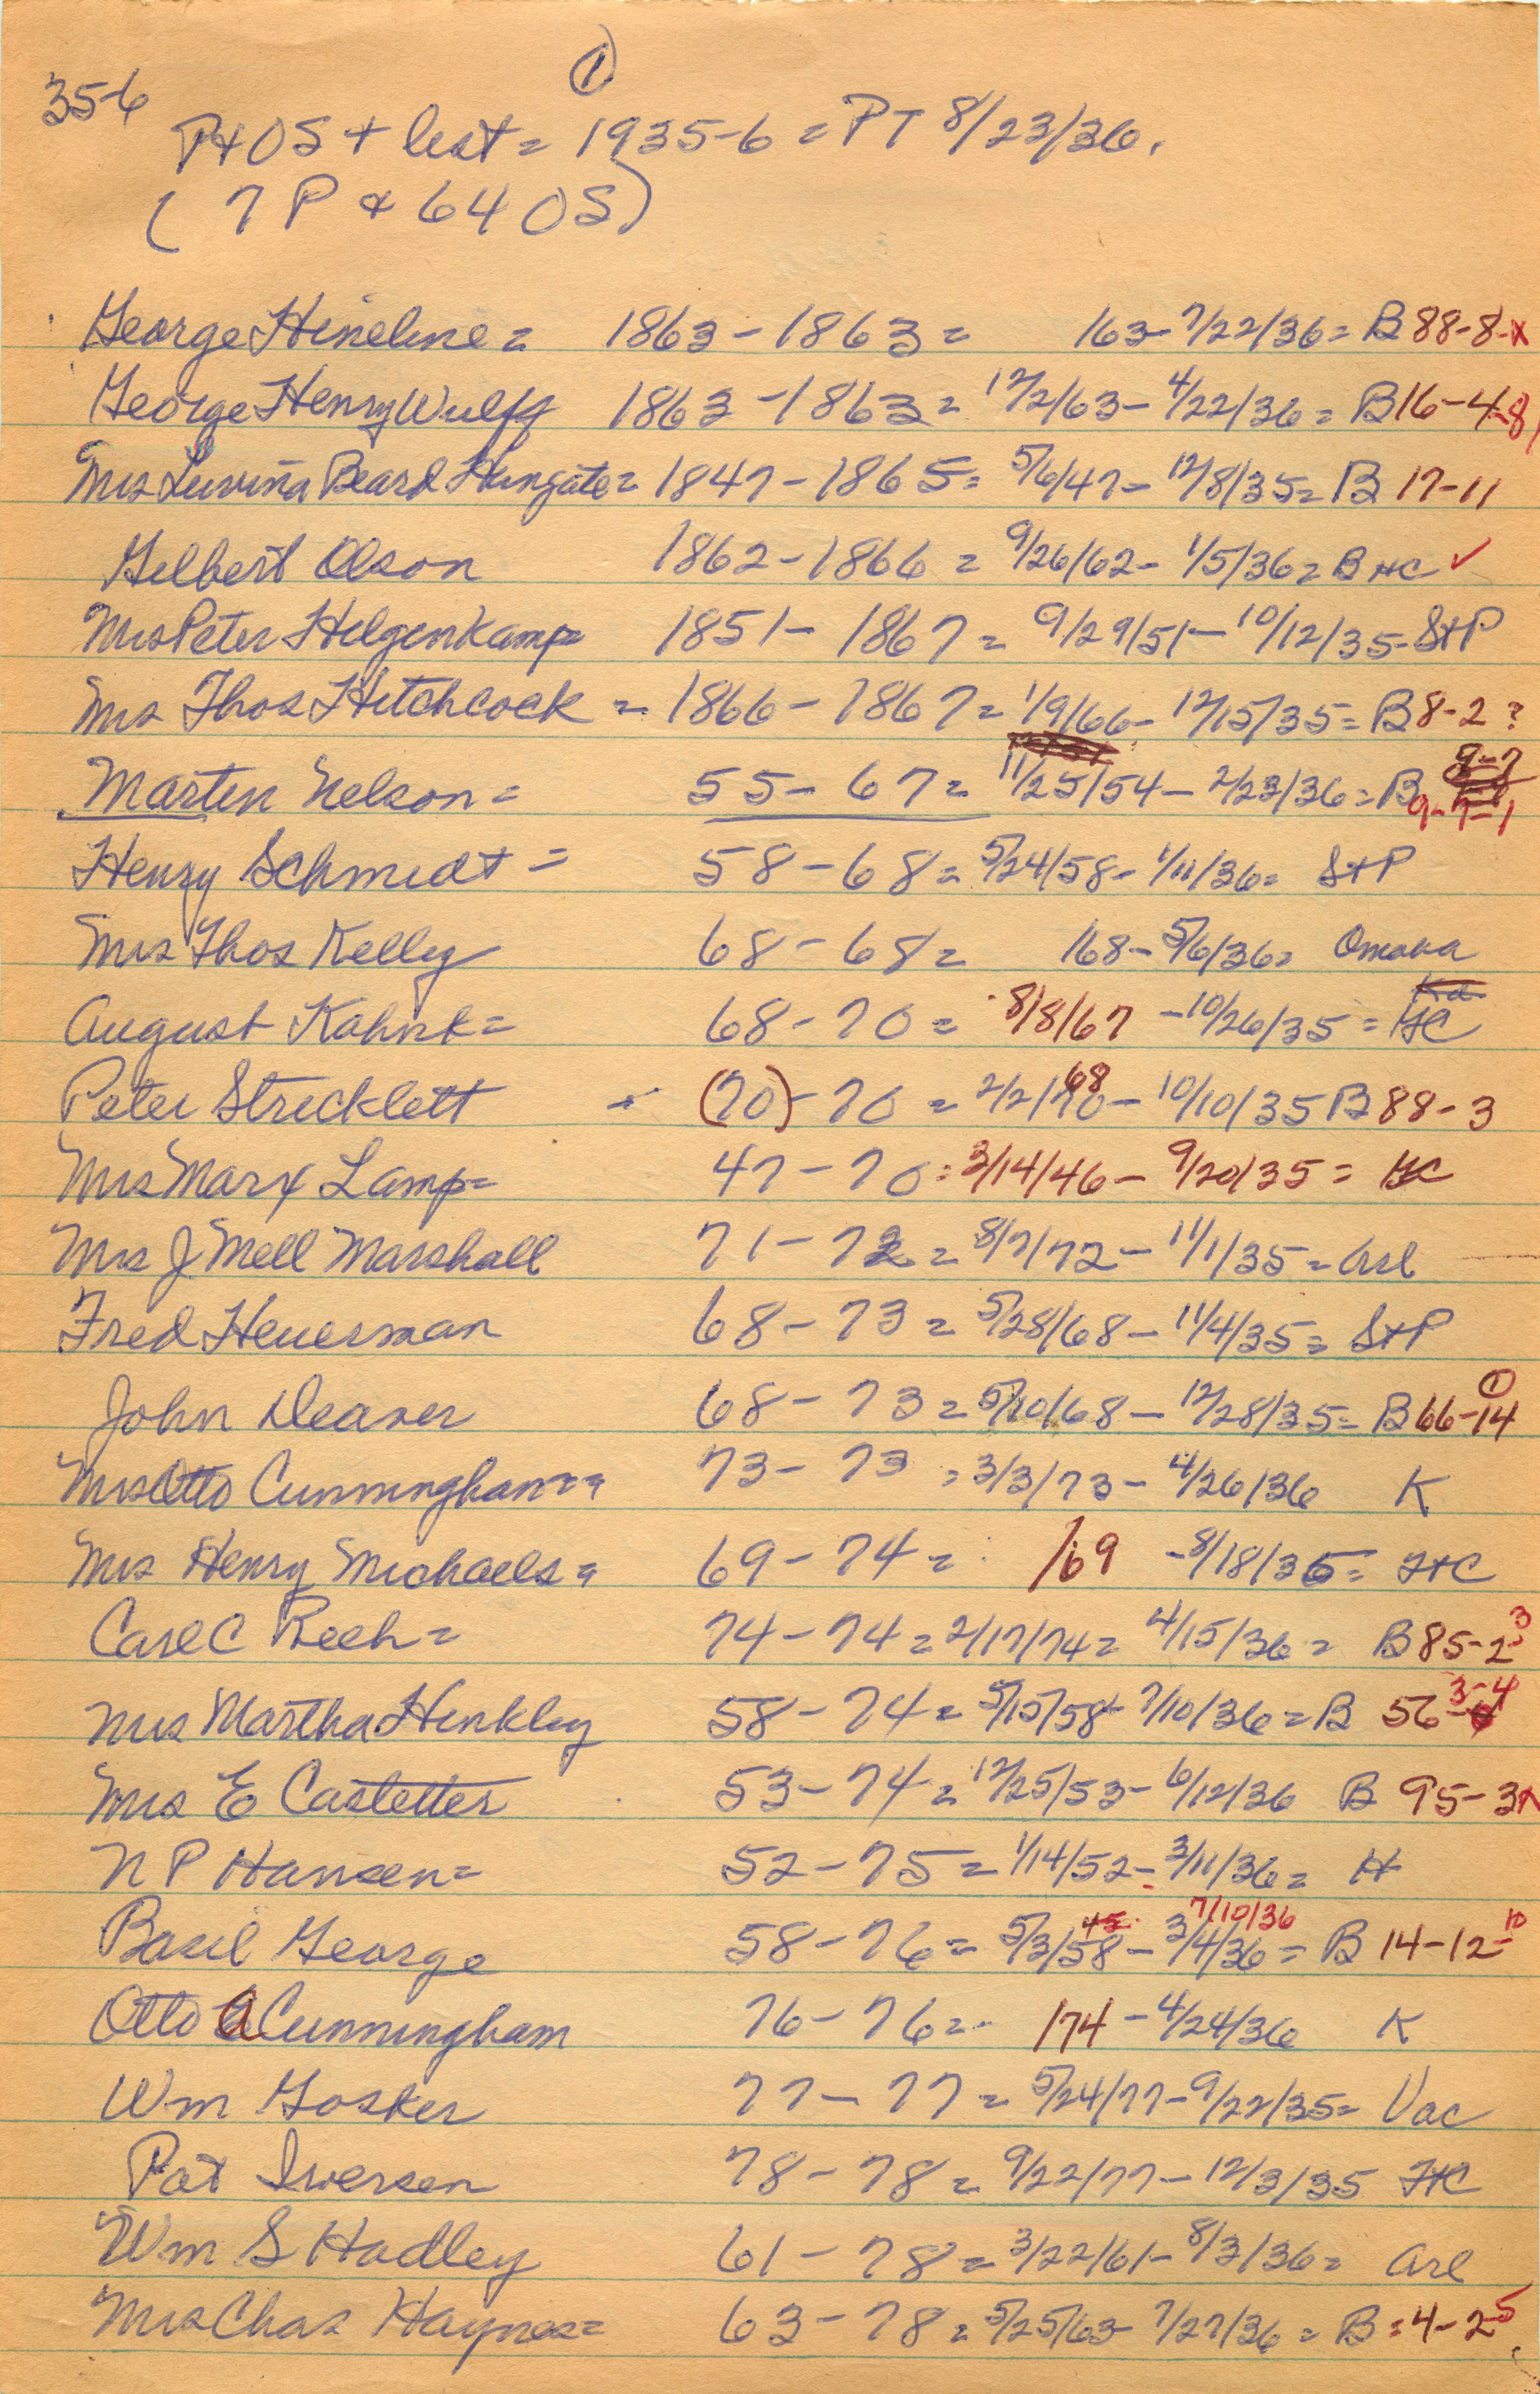 ①
35-6
P+OS + list = 1935-6 = PT 8/23/36.
(7 P & 64 OS)
George Hineline = 1863 - 1863 = 163 - 7/22/36 = B 88-8-x
George Henry Wulff 1863 - 1863 = 12/2/63 - 4/22/36 = B 16-4-8
Mrs Luvina Beard Hungate = 1847 - 1865 = 5/6/47 - 12/8/35 = B 17-11
Gilbert Olson 1862 - 1866 = 9/26/62 - 1/5/36 = B HC ✓
Mrs Peter Hilgenkamp = 1851 - 1867 = 9/29/51 - 10/12/35 - S+P
Mrs Thos Hitchcock = 1866 - 1867 = 1/9/66 - 12/15/35 = B 8-2 ?
Marten Nelson = 55 - 67 = 11/25/54 - 2/23/36 = B 9-7-1
Henry Schmidt = 58 - 68 = 5/24/58 - 1/11/36 = S+P
Mrs Thos Kelly 68 - 68 = 168 - 5/6/36 = Omaha
August Kahnk = 68 - 70 = 8/8/67 - 10/26/35 = HC
Peter Stricklett - (70) - 70 = 2/2/68 - 10/10/35 B 88-3
Mrs Marx Lamp = 47 - 70 = 3/14/46 - 9/20/35 = HC
Mrs J Mell Marshall 71 - 72 = 8/7/72 - 11/1/35 = Arl
Fred Heuerman 68 - 73 = 5/28/68 - 11/4/35 = S+P
John Deaver 68 - 73 = 5/10/68 - 12/28/35 = B 66-14 ①
Mrs Otto Cunningham = 73 - 73 = 3/3/73 - 4/26/36 K
Mrs Henry Michaels = 69 - 74 = /69 - 8/18/36 = HC
Carl C Reeh = 74 - 74 = 2/17/74 = 4/15/36 = B 85-2-3
Mrs Martha Hinkley 58 - 74 = 5/15/58 - 7/10/36 = B 56-3-4
Mrs E Castetter 53 - 74 = 12/25/53 - 6/12/36 B 95-3x
N P Hansen = 52 - 75 = 1/14/52 - 3/11/36 = H
Basil George 58 - 76 = 5/3/58 45 - 3/4/36 7/10/36 = B 14-12-10
Otto A Cunningham 76 - 76 = 174 - 4/24/36 K
Wm Gosker 77 - 77 = 5/24/77 - 9/22/35 = Vac
Pat Iversen 78 - 78 = 9/22/77 - 12/3/35 HC
Wm S Hadley 61 - 78 = 3/22/61 - 8/3/36 = Arl
Mrs Chas Haynes = 63 - 78 = 5/25/63 - 7/27/36 = B = 4-2-5